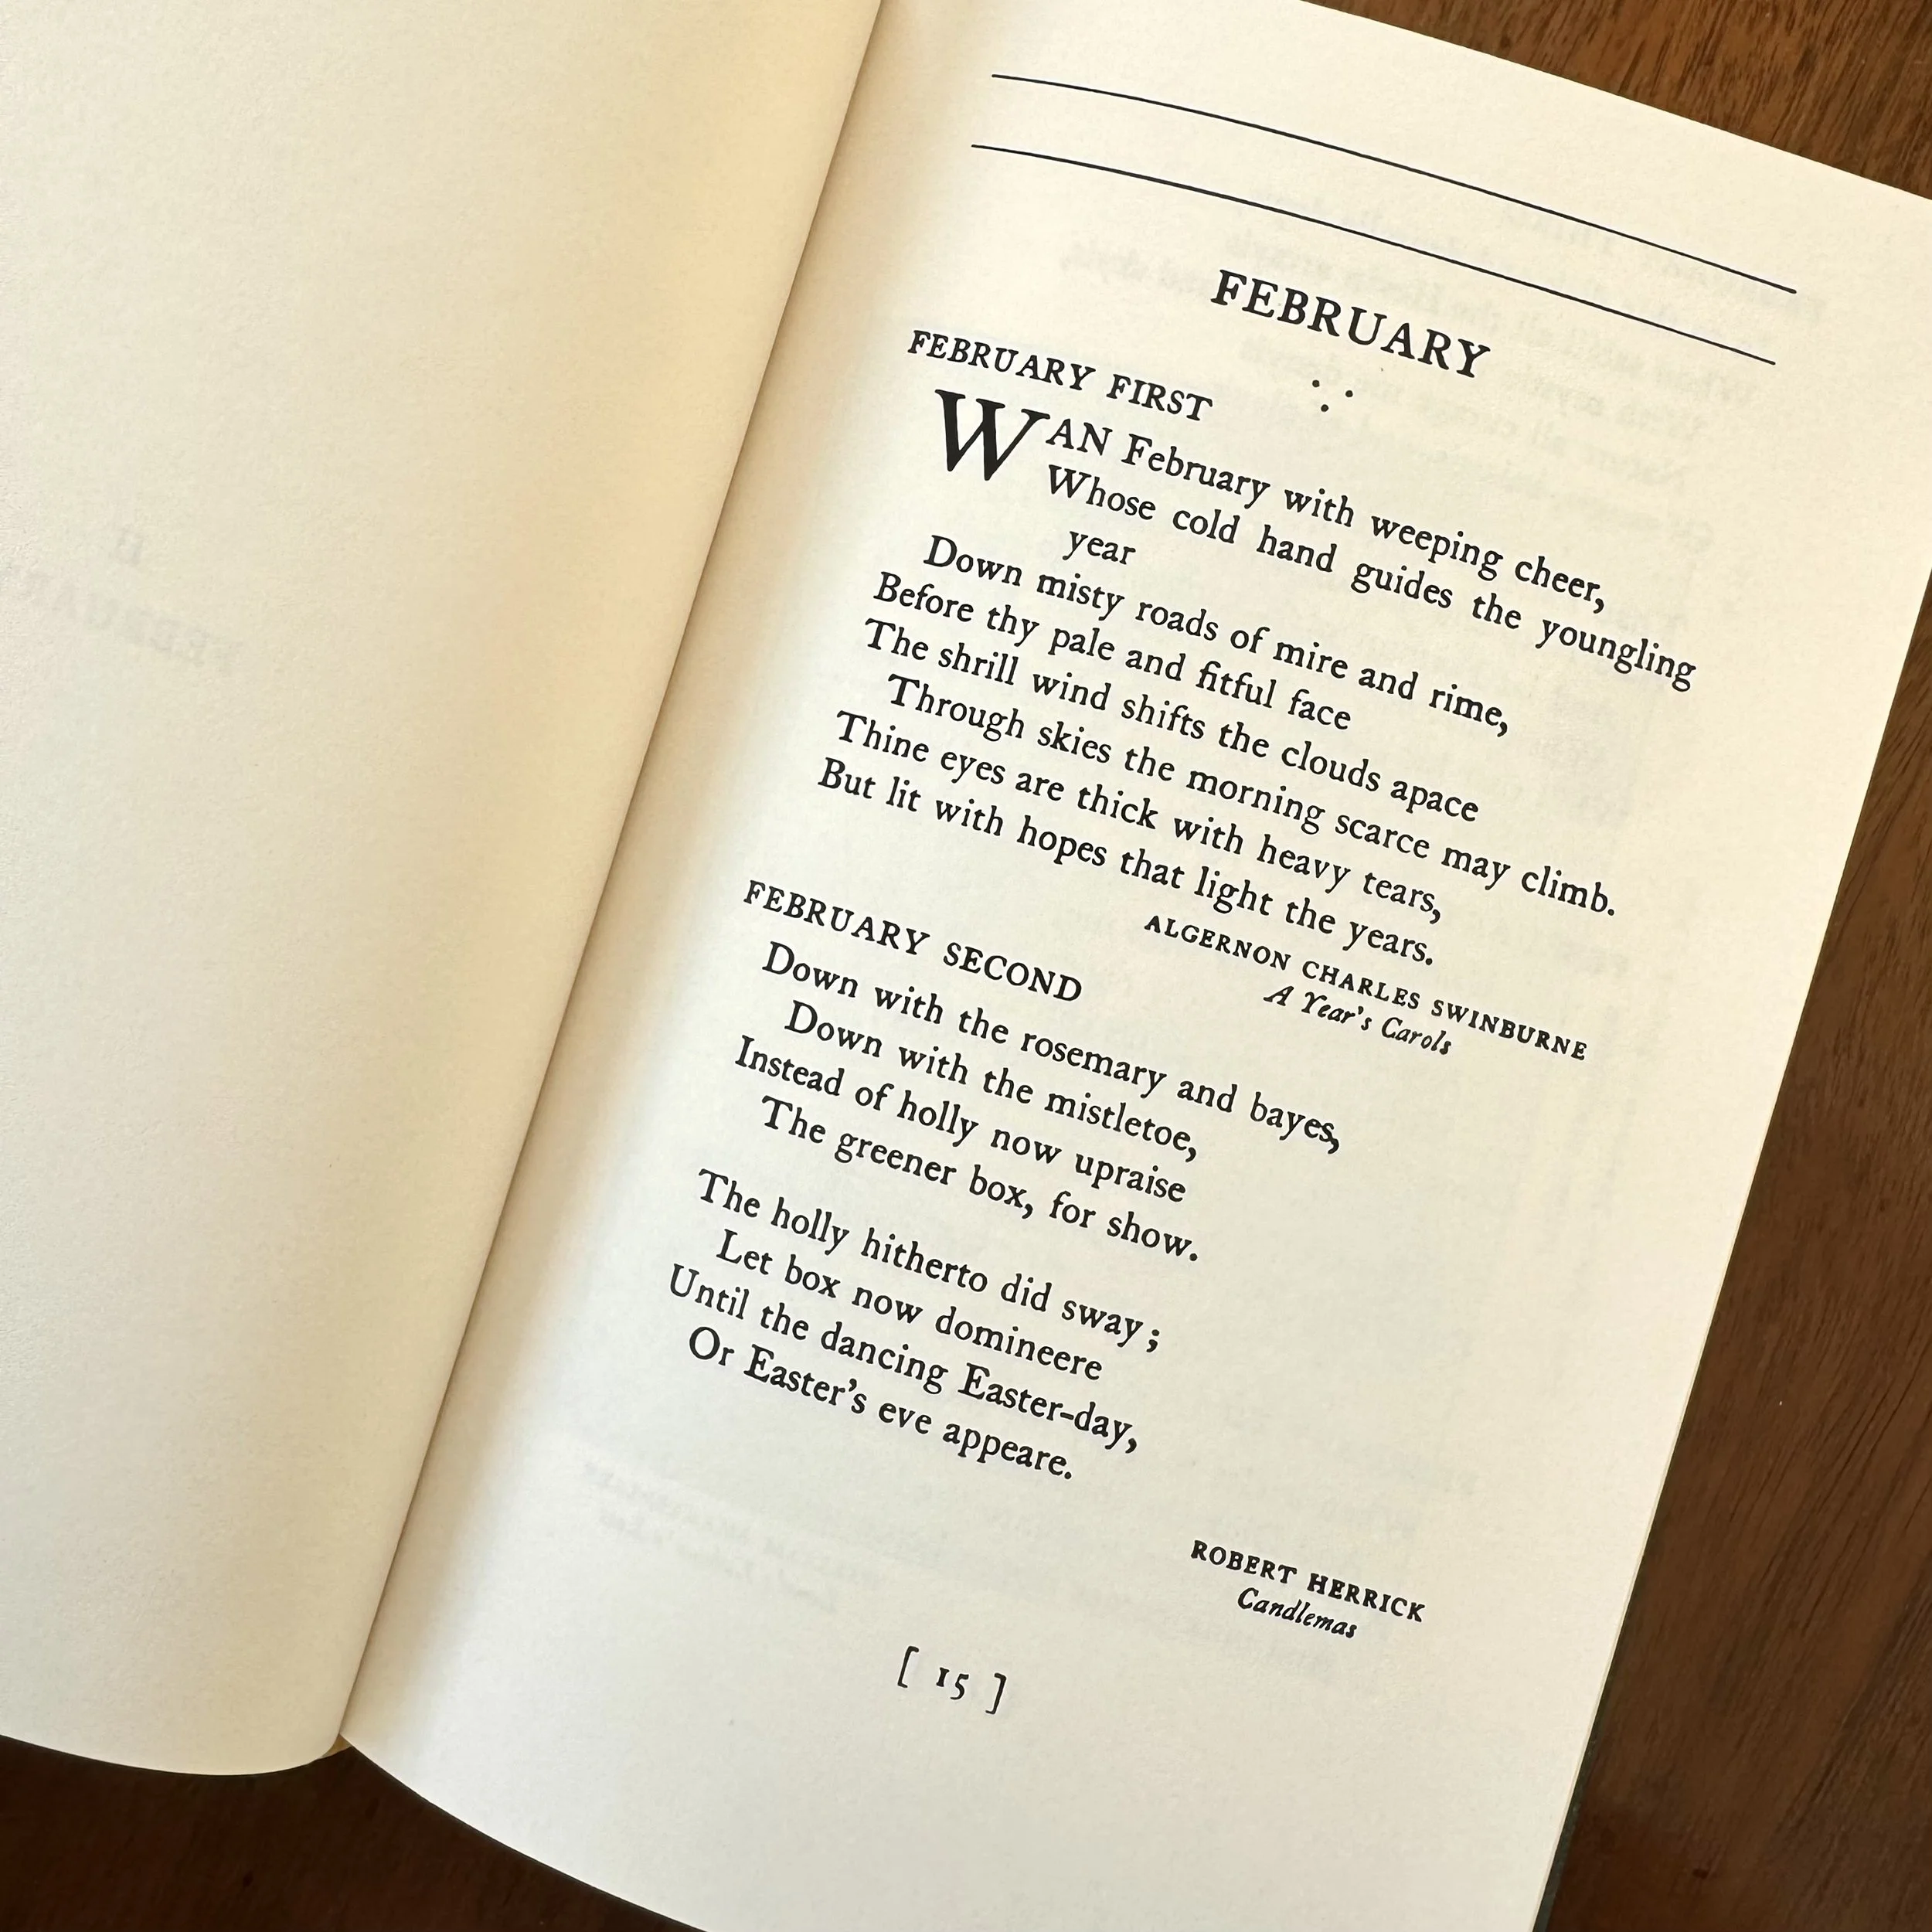 FEBRUARY
FEBRUARY FIRST
WAN February with weeping cheer,
Whose cold hand guides the youngling
year
Down misty roads of mire and rime,
Before thy pale and fitful face
The shrill wind shifts the clouds apace
Through skies the morning scarce may climb.
Thine eyes are thick with heavy tears,
But lit with hopes that light the years.
ALGERNON CHARLES SWINBURNE
A Year's Carols
FEBRUARY SECOND
Down with the rosemary and bayes,
Down with the mistletoe,
Instead of holly now upraise
The greener box, for show.
The holly hitherto did sway;
Let box now domineere
Until the dancing Easter-day,
Or Easter's eve appeare.
ROBERT HERRICK
Candlemas
[ 15 ]